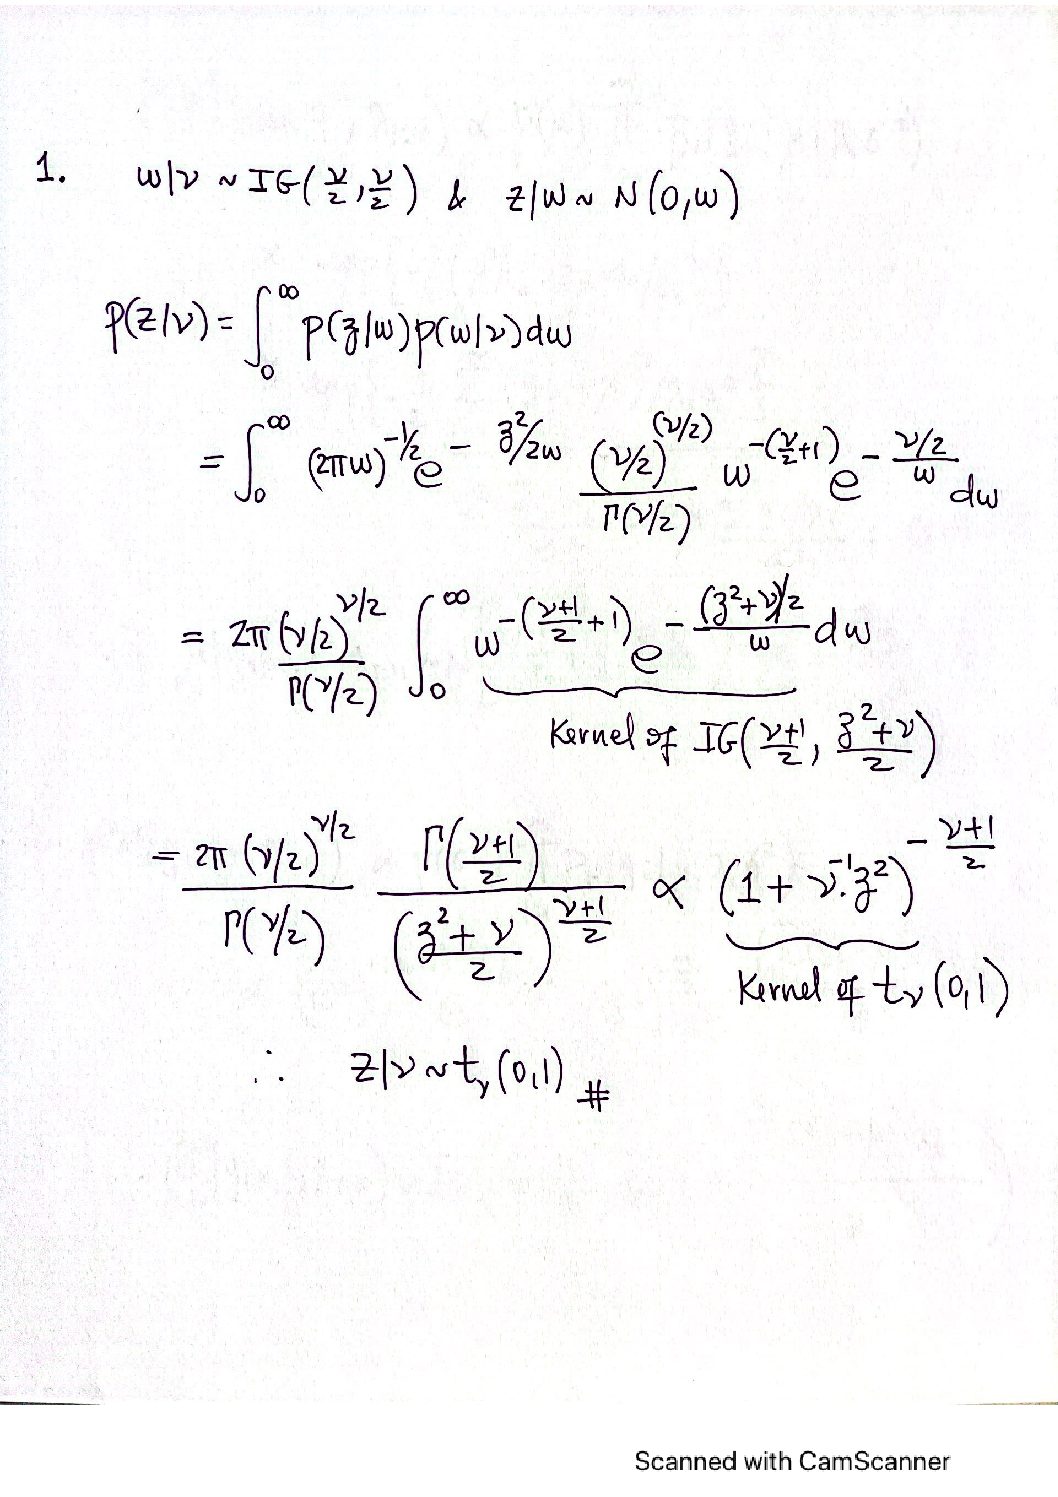 1. w|ν ~ IG(ν/2, ν/2) & z|w ~ N(0,w)
p(z|ν) = ∫₀^∞ p(z|w)p(w|ν)dw
= ∫₀^∞ (2πw)^(-1/2) e^(- z²/2w) (ν/2)^(ν/2) / Γ(ν/2) w^(-(ν/2+1)) e^(- (ν/2)/w) dw
= 2π (ν/2)^(ν/2) / Γ(ν/2) ∫₀^∞ w^(-((ν+1)/2 + 1)) e^(- ((z²+ν)/2)/w) dw
Kernel of IG((ν+1)/2, (z²+ν)/2)
= 2π (ν/2)^(ν/2) / Γ(ν/2) Γ((ν+1)/2) / ((z²+ν)/2)^((ν+1)/2) ∝ (1+ ν⁻¹·z²)^(- (ν+1)/2)
Kernel of t_ν(0,1)
∴ z|ν ~ t_ν(0,1) #
Scanned with CamScanner